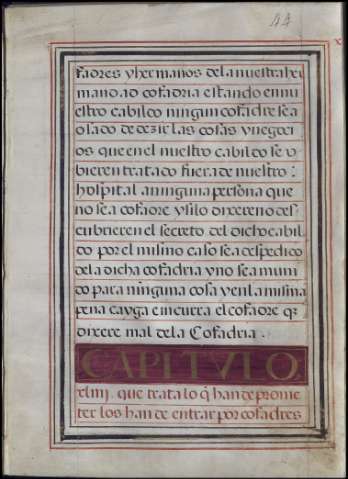 44
fadres y hermanos de la nuestra her
mandad cofadria estando en nu
estro cabildo ningun cofadre sea
osado de dezir las cosas y negoci
os que en el nuestro cabildo se v
bieren tratado fuera de nuestro
hospital a ninguna persona que
no sea cofadre y si lo dixere no des
cubrieren el secreto del dicho cabil
do por el mismo caso sea despedido
de la dicha cofadria y no sea muni
do para ninguna cosa y en la misma
pena cayga e incurra el cofadre q̄
dixere mal de la Cofadria.
CAPITVLO
xliiij. que trata lo q̄ han de prome
ter los han de entrar por cofadres